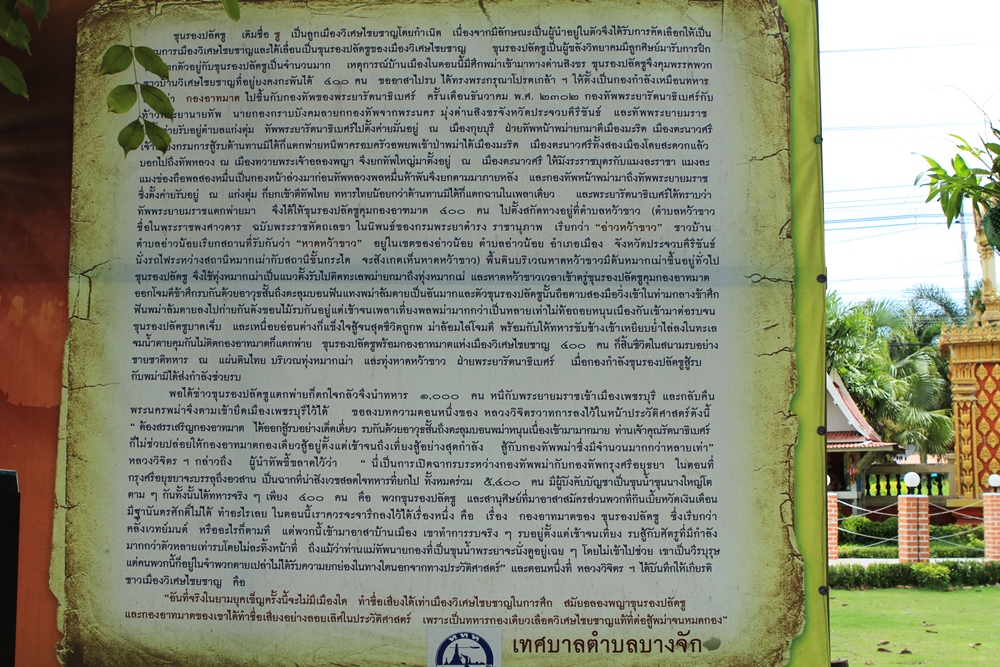 ขุนรองปลัดชู เดิมชื่อ ชู เป็นลูกเมืองวิเศษไชยชาญโดยกำเนิด เนื่องจากมีลักษณะเป็นผู้นำอยู่ในตัวจึงได้รับการคัดเลือกให้เป็น
การเมืองวิเศษไชยชาญและได้เลื่อนเป็นขุนรองปลัดชูของเมืองวิเศษไชยชาญ ขุนรองปลัดชูเป็นผู้ขลังวิทยาคมมีลูกศิษย์มารับการฝึก
ตัวอยู่กับขุนรองปลัดชูเป็นจำนวนมาก เหตุการณ์บ้านเมืองในตอนนี้มีศึกพม่าเข้ามาทางด่านสิงขร ขุนรองปลัดชูจึงคุมพรรคพวก
ชาวบ้านวิเศษไชยชาญที่อยู่ยงคงกะพันได้ ๔๐๐ คน ขออาสาไปรบ ได้ทรงพระกรุณาโปรดเกล้า ฯ ให้ตั้งเป็นกองกำลังเหมือนทหาร
กองอาทมาต ไปขึ้นกับกองทัพของพระยารัตนาธิเบศร์ ครั้นเดือนธันวาคม พ.ศ. ๒๓๐๒ กองทัพพระยารัตนาธิเบศร์กับ
นายทัพ นายกองกราบบังคมลายกกองทัพจากพระนคร มุ่งด่านสิงขรจังหวัดประจวบคีรีขันธ์ และทัพพระยายมราช
ค่ายรับอยู่ตำบลแก่งตุ่ม ทัพพระยารัตนาธิเบศร์ไปตั้งค่ายมั่นอยู่ ณ เมืองกุยบุรี ฝ่ายทัพหน้าพม่ายกมาตีเมืองมะริด เมืองตะนาวศรี
กรมการสู้รบต้านทานมิได้ก็แตกพ่ายหนีพาครอบครัวอพยพเข้าป่าพม่าได้เมืองมะริด เมืองตะนาวศรีทั้งสองเมืองโดยสะดวกแล้ว
บอกไปถึงทัพหลวง ณ เมืองทวายพระเจ้าอลองพญา จึงยกทัพใหญ่มาตั้งอยู่ ณ เมืองตะนาวศรี ให้มังระราชบุตรกับแมงละราชา แมงละ
แมงข่องถือพลสองหมื่นเป็นกองหน้าล่วงมาก่อนทัพหลวงพลหมื่นห้าพันจึงยกตามมาภายหลัง และกองทัพหน้าพม่ามาถึงทัพพระยายมราช
ซึ่งตั้งค่ายรับอยู่ ณ แก่งตุ่ม ก็ยกเข้าตีทัพไทย ทหารไทยน้อยกว่าต้านทานมิได้ก็แตกฉานในเพลาเดียว และพระยารัตนาธิเบศร์ได้ทราบว่า
ทัพพระยายมราชแตกพ่ายมา จึงได้ให้ขุนรองปลัดชูคุมกองอาทมาต ๔๐๐ คน ไปตั้งสกัดทางอยู่ที่ตำบลหว้าขาว (ตำบลหว้าขาว
ชื่อในพระราชพงศาวดาร ฉบับพระราชหัตถเลขา ในนิพนธ์ของกรมพระยาดำรง ราชานุภาพ เรียกว่า “อ่าวหว้าขาว” ชาวบ้าน
ตำบลอ่าวน้อยเรียกสถานที่รับกันว่า “หาดหว้าขาว” อยู่ในเขตของอ่าวน้อย ตำบลอ่าวน้อย อำเภอเมือง จังหวัดประจวบคีรีขันธ์
นั่งรถไฟระหว่างสถานีหมากเม่ากับสถานีชั้นกระได จะสังเกตเห็นหาดหว้าขาว) พื้นดินบริเวณหาดหว้าขาวมีต้นหมากเม่าขึ้นอยู่ทั่วไป
ขุนรองปลัดชู จึงใช้ทุ่งหมากเม่าเป็นแนวตั้งรับไปติดทะเลพม่ายกมาถึงทุ่งหมากเม่ และหาดหว้าขาวเวลาเช้าตรู่ขุนรองปลัดชูคุมกองอาทมาต
ออกโจมตีข้าศึกรบกันด้วยอาวุธสั้นถึงตะลุมบอนฟันแทงพม่าล้มตายเป็นอันมากและตัวขุนรองปลัดชูนั้นถือดาบสองมือวิ่งเข้าในท่ามกลางข้าศึก
ฟันพม่าล้มตายลงไปก่ายกันดังขอนไม้รบกันอยู่แต่เช้าจนเพลาเที่ยงพลพม่ามากกว่าเป็นหลายเท่าไม่ท้อถอยหนุนเนื่องกันเข้ามาต่อรบจน
ขุนรองปลัดชูบาดเจ็บ และเหนื่อยอ่อนต่างก็แข็งใจสู้จนสุดชีวิตถูกพ ม่าล้อมไล่โจมตี พร้อมกับให้ทหารขับช้างเข้าเหยียบย่ำไล่ลงในทะเล
จมน้ำตายคุมกันไม่ติดกองอาทมาตก็แตกพ่าย ขุนรองปลัดชูพร้อมกองอาทมาตแห่งเมืองวิเศษไชยชาญ ๔๐๐ คน ก็สิ้นชีวิตในสนามรบอย่าง
ชายชาติทหาร ณ แผ่นดินไทย บริเวณทุ่งหมากเม่า และทุ่งหาดหว้าขาว ฝ่ายพระยารัตนาธิเบศร์ เมื่อกองกำลังขุนรองปลัดชูสู้รบ
กับพม่ามิได้ส่งกำลังช่วยรบ
พอได้ข่าวขุนรองปลัดชูแตกพ่ายก็ตกใจกลัวจึงนำทหาร ๑,๐๐๐ คน หนีกับพระยายมราชเข้าเมืองเพชรบุรี และกลับคืน
พระนครพม่าจึงตามเข้ายึดเมืองเพชรบุรีไว้ได้ ขอลงบทความตอนหนึ่งของ หลวงวิจิตรวาทการลงไว้ในหน้าประวัติศาสตร์ดังนี้
“ ต้องสรรเสริญกองอาทมาต ได้ออกสู้รบอย่างเด็ดเดี่ยว รบกันด้วยอาวุธสั้นถึงตะลุมบอนพม่าหนุนเนื่องเข้ามามากมาย ท่านเจ้าคุณรัตนาธิเบศร์
ก็ไม่ช่วยปล่อยให้กองอาทมาตกองเดียวสู้อยู่ตั้งแต่เช้าจนถึงเที่ยงสู้อย่างสุดกำลัง สู้กับกองทัพพม่าซึ่งมีจำนวนมากกว่าหลายเท่า”
หลวงวิจิตร ฯ กล่าวถึง ผู้นำทัพขี้ขลาดไว้ว่า “ นี่เป็นการเปิดฉากรบระหว่างกองทัพพม่ากับกองทัพกรุงศรีอยุธยา ในตอนที่
กรุงศรีอยุธยาจะบรรลุถึงอวสาน เป็นฉากที่น่าสังเวชสลดใจทหารที่ยกไป ทั้งหมดร่วม ๕,๔๐๐ คน มีผู้บังคับบัญชาเป็นขุนน้ำขุนนางใหญ่โต
ตาม ๆ กันทั้งนั้นได้ทหารจริง ๆ เพียง ๔๐๐ คน คือ พวกขุนรองปลัดชู และสานุศิษย์ที่มาอาสาสมัครส่วนพวกที่กินเบี้ยหวัดเงินเดือน
มีฐานันดรศักดิ์ไม่ได้ ทำอะไรเลย ในตอนนี้เราควรจะจารึกลงไว้ได้เรื่องหนึ่ง คือ เรื่อง กองอาทมาตของ ขุนรองปลัดชู ซึ่งเรียกว่า
คลังเวทย์มนต์ หรืออะไรก็ตามที แต่พวกนี้เข้ามาอาสาบ้านเมือง เขาทำการรบจริง ๆ รบอยู่ตั้งแต่เช้าจนเที่ยง รบสู้กับศัตรูที่มีกำลัง
มากกว่าตัวหลายเท่ารบโดยไม่ละทิ้งหน้าที่ ถึงแม้ว่าท่านแม่ทัพนายกองที่เป็นขุนน้ำพระยาจะนั่งดูอยู่เฉย ๆ โดยไม่เข้าไปช่วย เขาเป็นวีรบุรุษ
แต่คนพวกนี้ก็อยู่ในจำพวกตายเปล่าไม่ได้รับความยกย่องในทางใดนอกจากทางประวัติศาสตร์” และตอนหนึ่งที่ หลวงวิจิตร ฯ ได้บันทึกให้เกียรติ
ชาวเมืองวิเศษไชยชาญ คือ
“อันที่จริงในยามยุคเข็ญครั้งนี้จะไม่มีเมืองใด ทำชื่อเสียงได้เท่าเมืองวิเศษไชยชาญในการศึก สมัยอลองพญาขุนรองปลัดชู
และกองอาทมาตของเขาได้ทำชื่อเสียงอย่างลอยเลิศในประวัติศาสตร์ เพราะเป็นทหารกองเดียวเลือดวิเศษไชยชาญแท้ที่ต่อสู้พม่าจนหมดกอง”
ททท
เทศบาลตำบลบางจัก